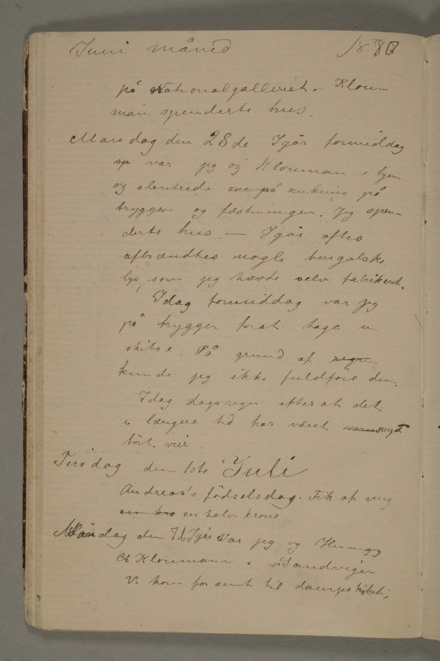 Juni måned 1880
på Nationalgalleriet – Klou-
man spenderte hus.
Mandag den 28de Igår formiddag
var jeg og Klouman i byen
og slentrede på
bryggen og fæstningen. Jeg spen-
derte hus. – Igår aftes
afbrændtes nogle bengalske
lys, som jeg havde selv fabrikert.
Idag formiddag var jeg
på bryggen forat tage en
skitse. På grund af regn
kunde jeg ikke fuldføre den.
Idag dagsregn efterat det
i længere tid har været
tørt veir
Tirsdag den 1ste Juli
Andreas's fødselsdag. Fik af mig
en halv krone
Måndag den Igår var jeg og
Kloumann i Sandvigen
Vi kom for sent til dampskibet,